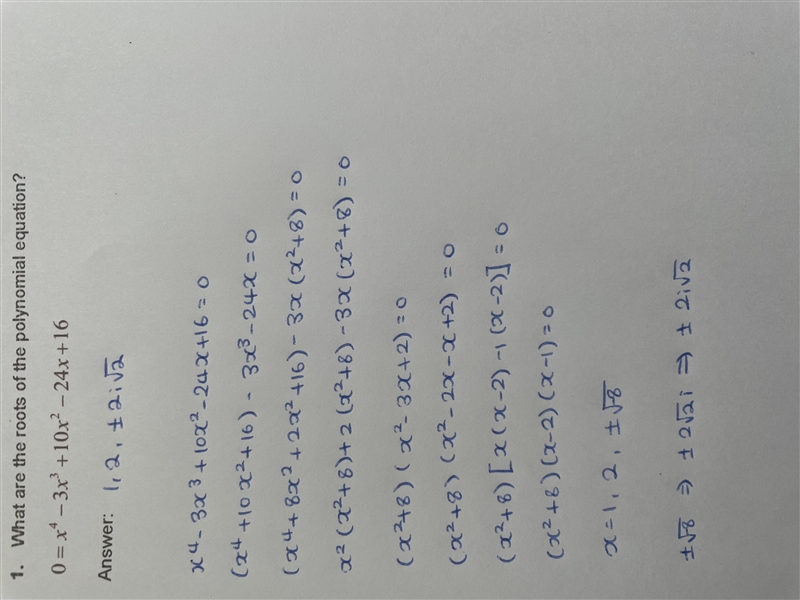 1. What are the roots of the polynomial equation?
0 = x⁴ − 3x³ + 10x² − 24x + 16
Answer: 1, 2, ± 2i√2
x⁴ - 3x³ + 10x² - 24x + 16 = 0
(x⁴ + 10x² + 16) - 3x³ - 24x = 0
(x⁴ + 8x² + 2x² + 16) - 3x (x² + 8) = 0
x² (x² + 8) + 2 (x² + 8) - 3x (x² + 8) = 0
(x² + 8) (x² - 3x + 2) = 0
(x² + 8) (x² - 2x - x + 2) = 0
(x² + 8) [x (x - 2) - 1 (x - 2)] = 0
(x² + 8) (x - 2) (x - 1) = 0
x = 1, 2, ± √-8
± √-8 ⇒ ± 2√2 i ⇒ ± 2i√2